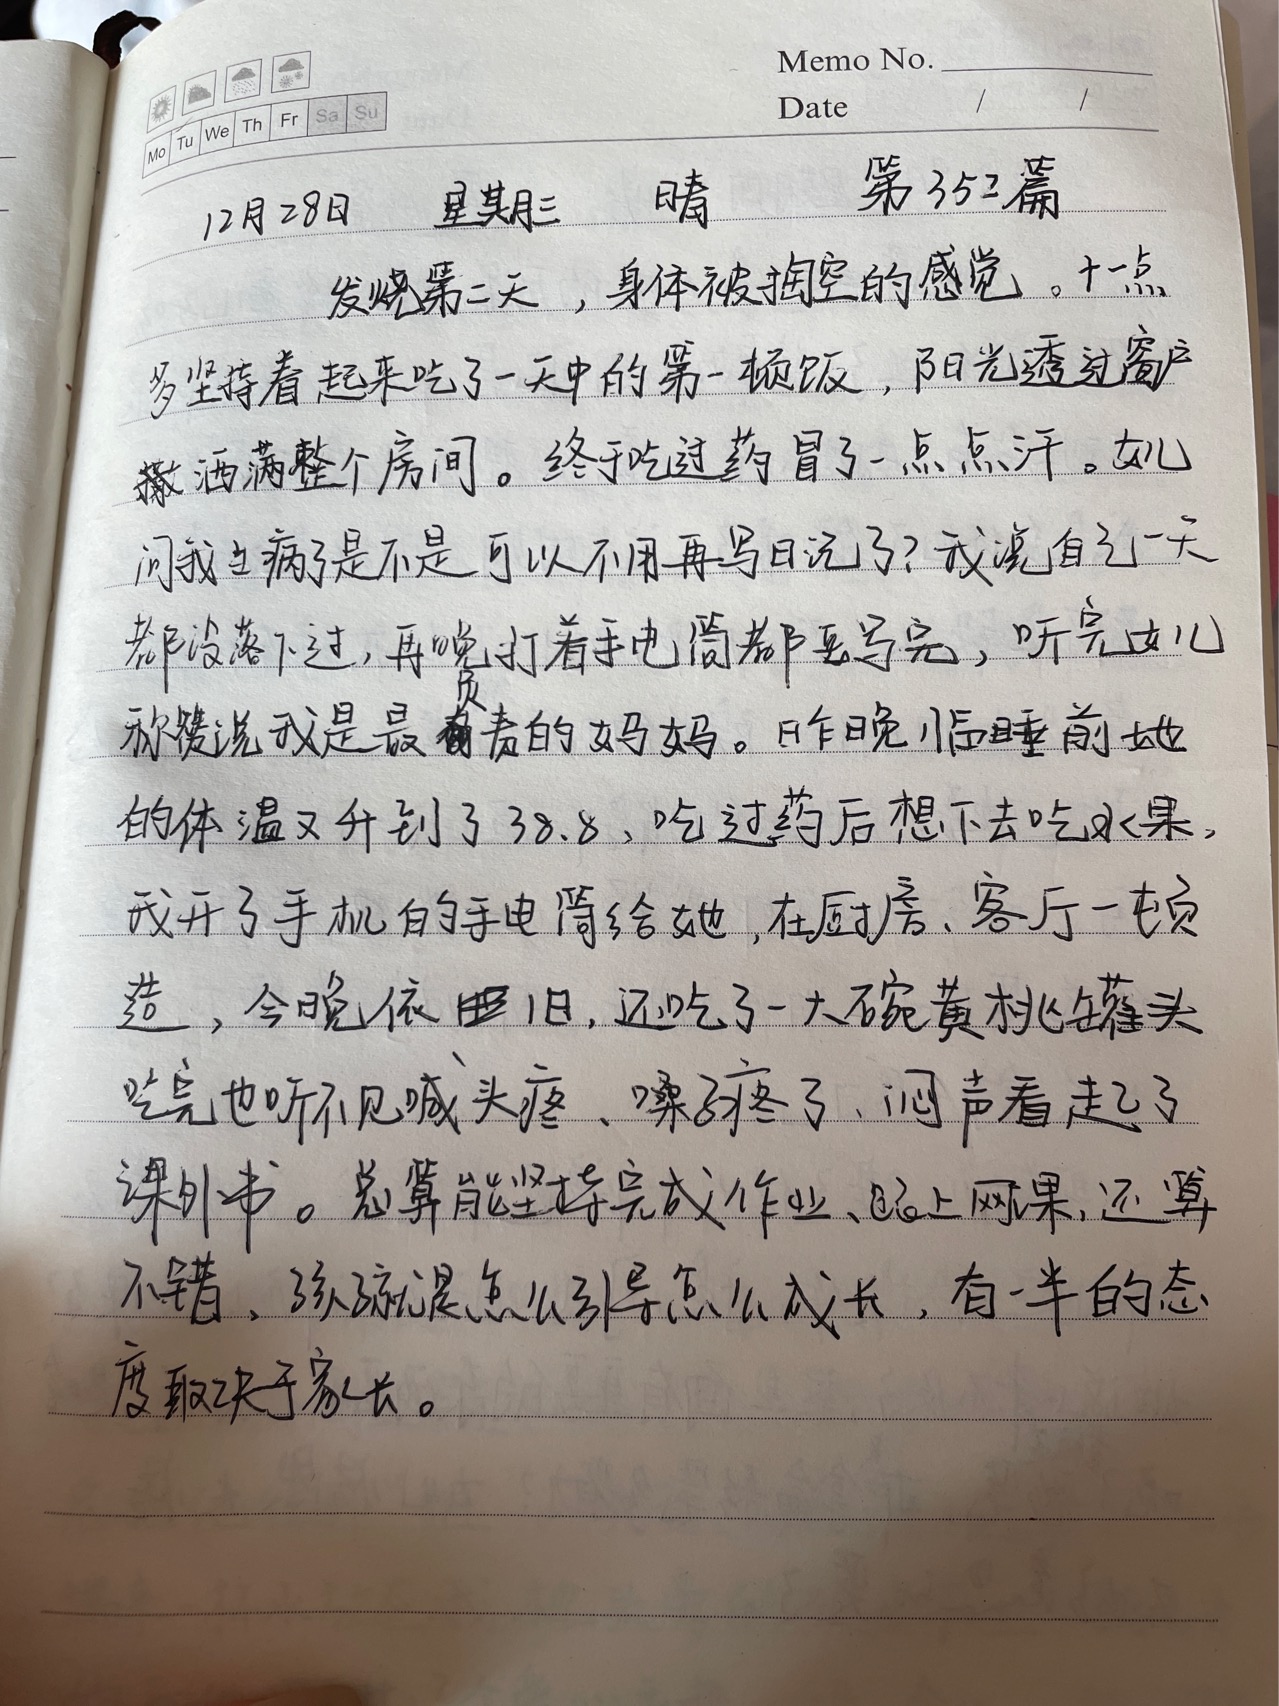 Memo No.
Mo Tu We Th Fr Sa Su
Date / /
12月28日 星期三 晴 第352篇
发烧第二天，身体被掏空的感觉。十一点
多坚持着起来吃了一天中的第一顿饭，阳光透过窗户
洒满整个房间。终于吃过药冒了一点点汗。女儿
问我生病了是不是可以不用再写日记了？我说自己一天
都没落下过，再晚打着手电筒都要写完，听完女儿
称赞说我是最负责的妈妈。昨晚临睡前她
的体温又升到了38.8，吃过药后想下去吃水果，
我开了手机的手电筒给她，在厨房、客厅一顿
造，今晚依旧，还吃了一大碗黄桃罐头
吃完也听不见喊头疼、嗓子疼了、闷声看起了
课外书。总算能坚持完成作业、晚上网课，还算
不错、孩子就是怎么引导怎么成长，有一半的态
度取决于家长。